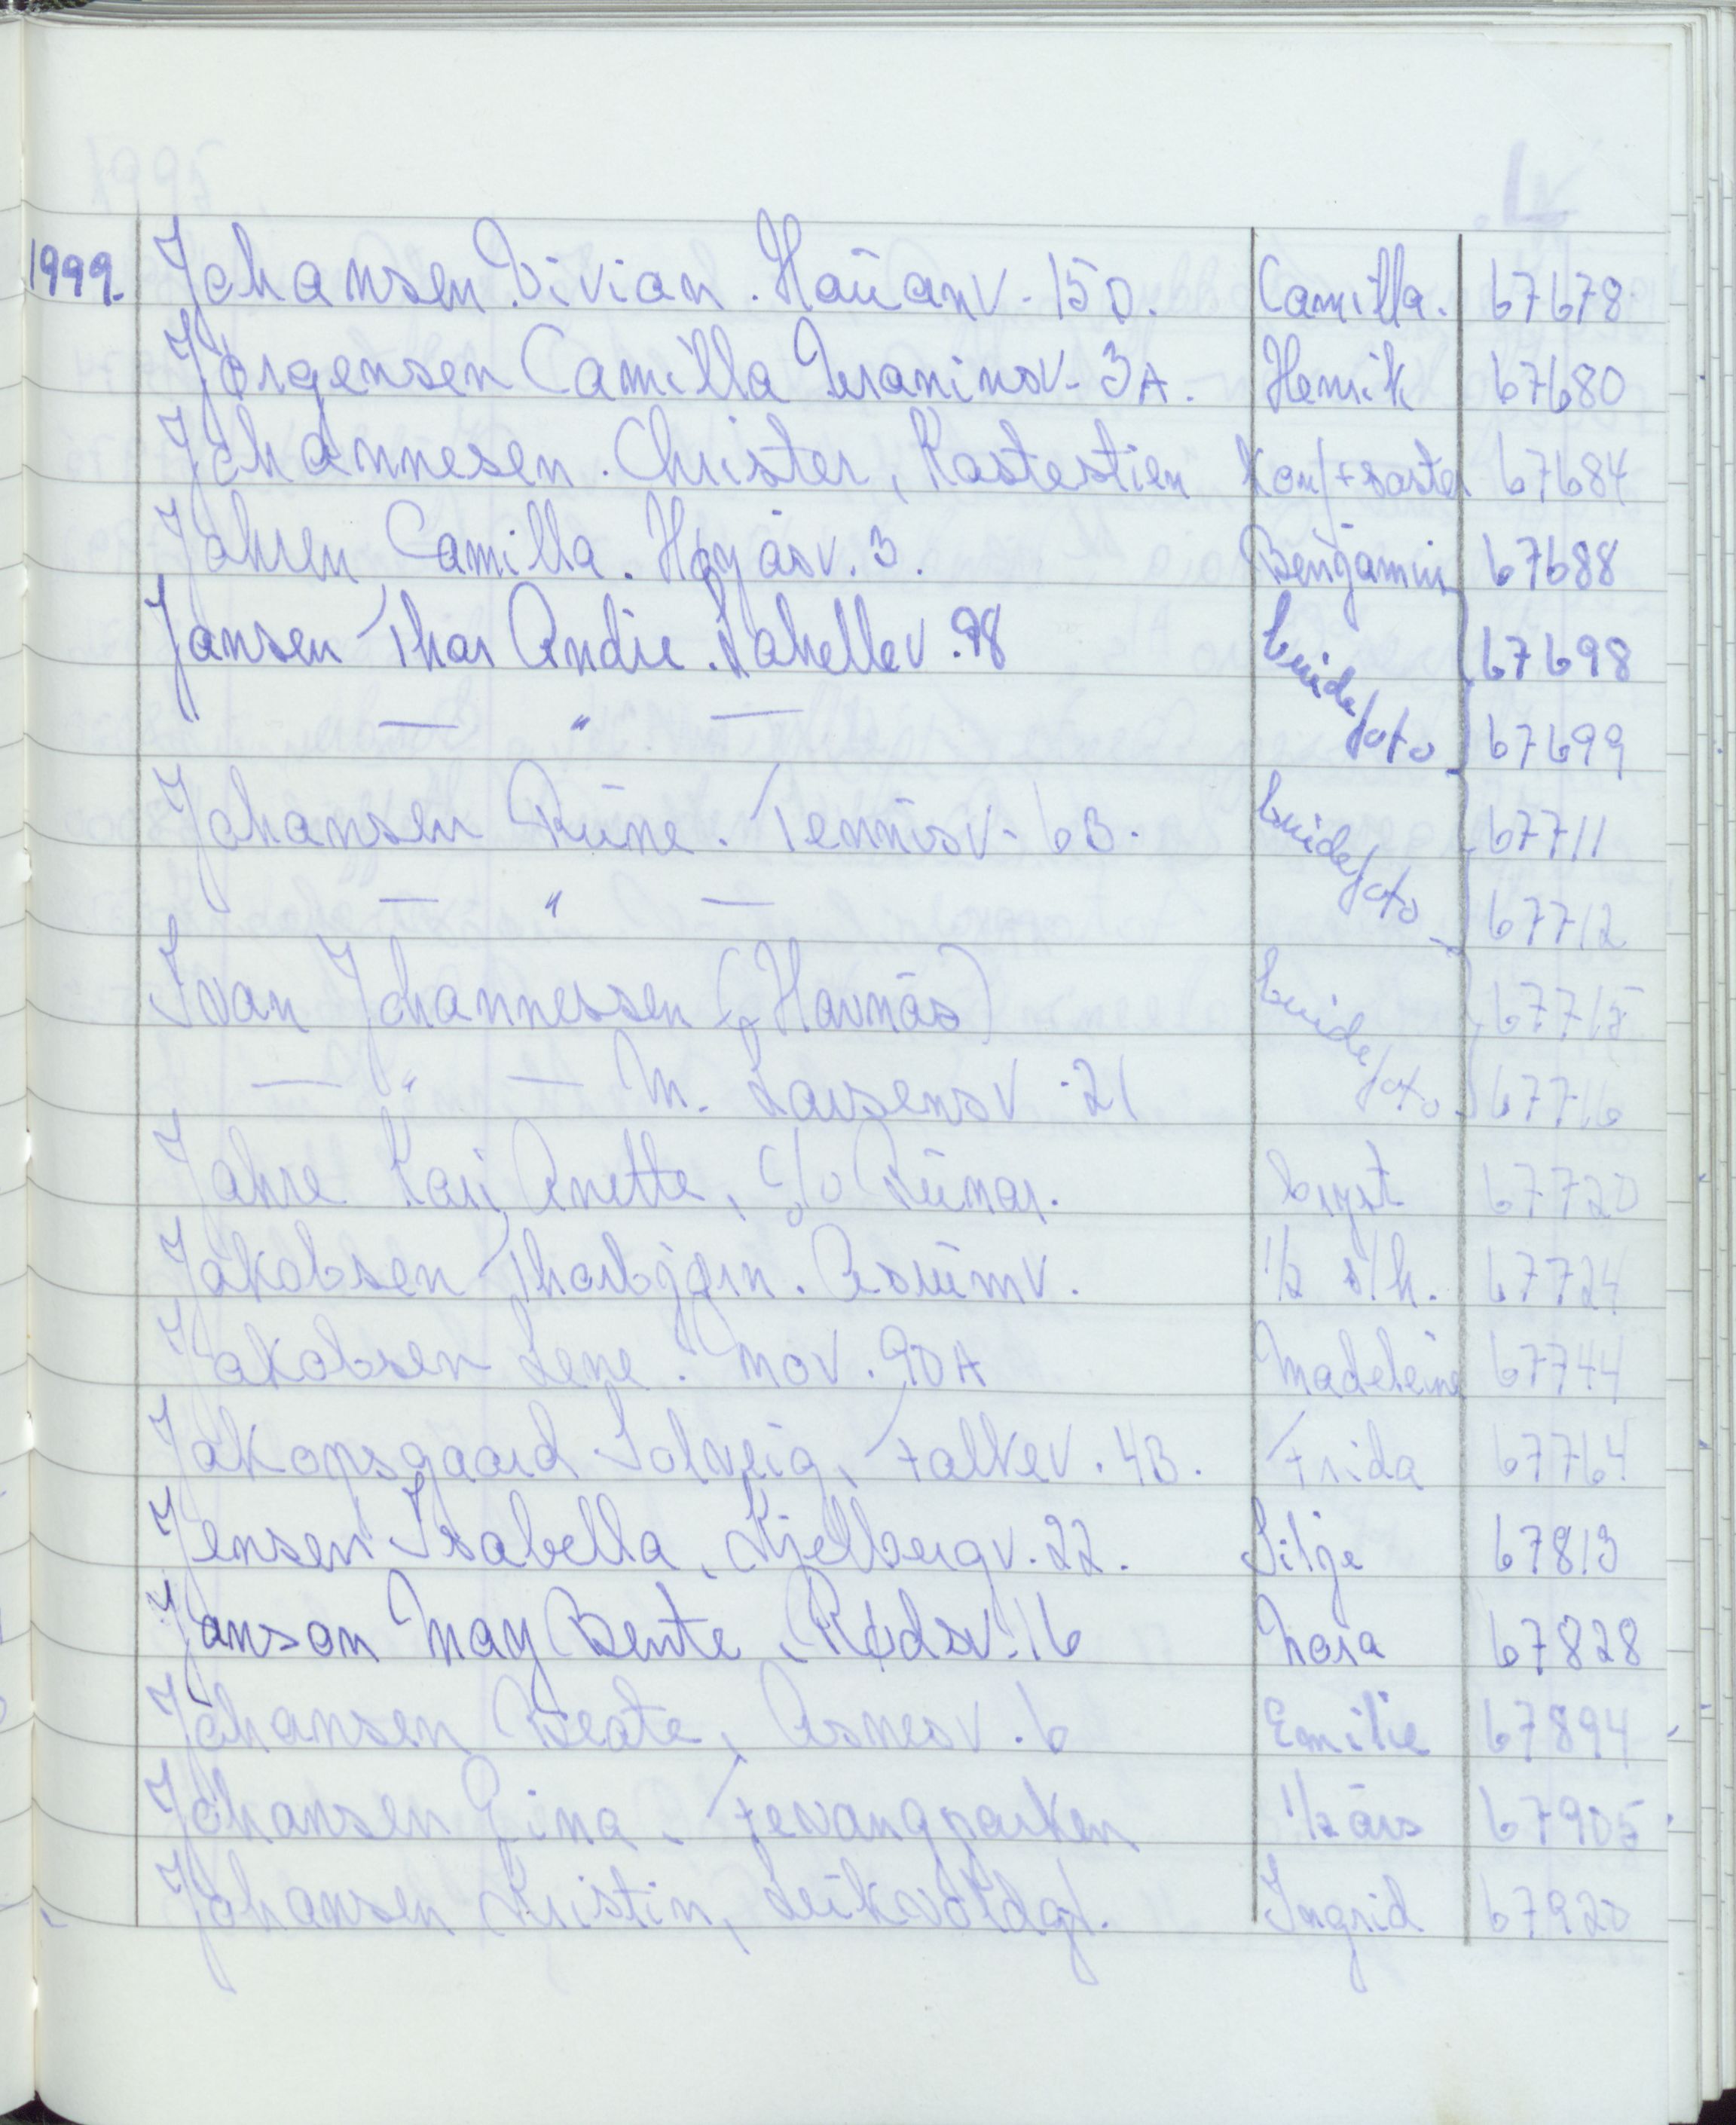 1999. Johansen Vivian. Hauanv. 150. Camilla. 67678
Jörgensen Camilla Uraninsv. 3A. Henrik 67680
Johannesen. Christer, Rastestien Konf + søster 67684
Jahren Camilla. Høyåsv. 3. Benjamin 67688
Jansen Thor André. Lahellev. 98 brude 67698
— " — foto 67699
Johansen Rune. Tennisv. 6B. brude 67711
— " — foto 67712
Ivan Johannessen (Havnås) brude 67715
— " — M. Larsensv. 21 foto 67716
Jahre Kari Anette, c/o Runar. bryst 67720
Jakobsen Thorbjørn. Asrumv. 1/2 s/h. 67724
Jakobsen Lene. Mov. 90A Madeleine 67744
Jakopsgaard Solveig, Falkev. 4B. Frida 67764
Jensen Isabella, Kjelbergv. 22. Silje 67813
Janson May Bente, Rødsv. 16 Nora 67828
Johansen Beate, Asnesv. 6 Emilie 67894
Johansen Gina. Fevangparken 1/2 års 67905
Johansen Kristin, Leikvollgt. Ingrid 67920